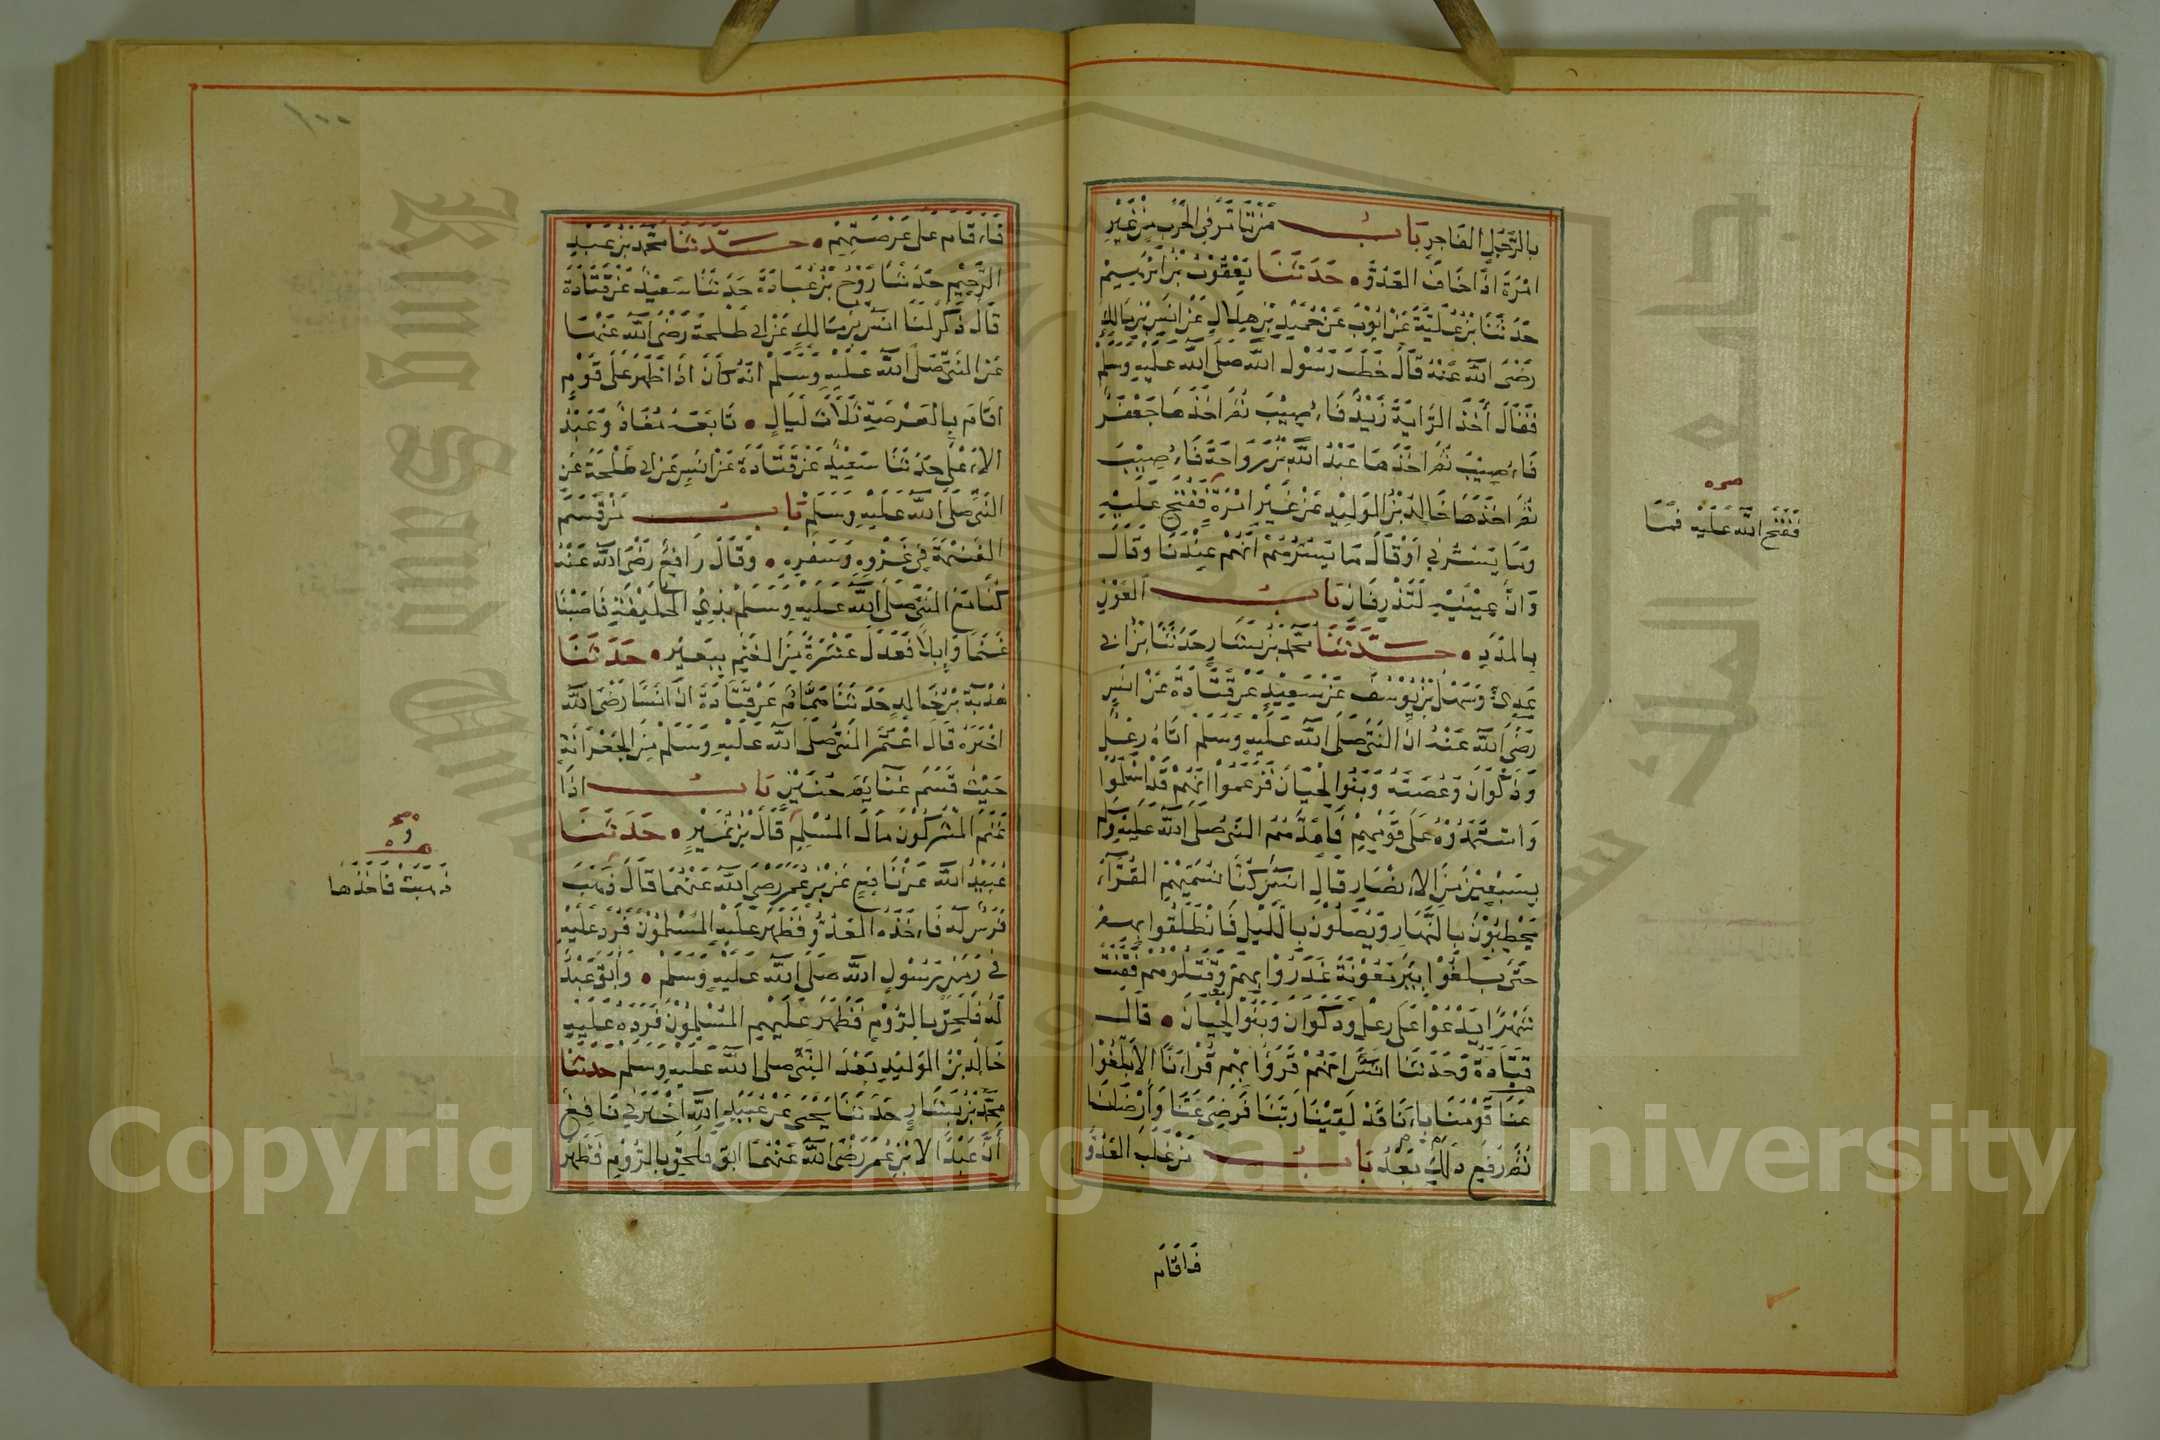 بِالرَّجُلِ الفَاجِرِ بَابُ مَنْ تَأَمَّرَ فِى الحَرْبِ مِنْ غَيْرِ
امْرَةٍ اذَا خَافَ العَدُوَّ حَدَثَنَا يَعْقُوْبُ بْنُ ابْرٰهِيمَ
حَدَثَنَا بْنُ عُلَيَّةَ عَنْ ايُوْبَ عَنْ حُمَيْدِ بْنِ هِلِالٍ عَنْ انَسِ بْنِ مَالِكٍ
رَضَىَ اللّٰه عَنْهُ قَالَ خَطَبَ رَسُوْل اللّٰه صَلَى اللّٰه عَلَيْهِ وَسَلَّمَ
فَقَالَ أَخَذَ الرَّايَةَ زَيْدٌ فَاُصِيْبَ ثُمَ اخَذَهَا جَعْفَرٌ
فَاُصِيْبَ ثُمَ اخَذَهَا عَبْدُ اللّٰهِ بْنُ رَوَاحَةَ فَاُصِيْبَ
ثُمَ اخَذَهَا خَالِدُ بْنُ الوَلِيْدِ عَنْ غَيْرِ امْرَةٍ فَفُتِحَ عَلَيْهِ
وَمَا يَسُرُّنِي اوْ قَالَ مَا يَسُرُّهُمْ انَّهُمْ عِنْدَنَا وَقَالَ
وَانَّ عَيْنَيْهِ لَتَذْرِفَانِ بَابُ العَوْنِ
بِالمَدَدِ حَدَّثَنَا مُحَمَّدُ بْنُ بَشَارٍ حَدَثَنَا بْنُ ابِي
عَدِىٍّ وَسَهْلُ بْنُ يُوْسُفَ عَنْ سَعِيْدٍ عَنْ قَتَادَةَ عَنْ انَسٍ
رَضَىَ اللّٰه عَنْهُ انَّ النَبَّىَ صَلَى اللّٰه عَلَيْهِ وَسَلَمَ اتَاهُ رِعْلٌ
وَذَكْوَانَ وَعُصَيَّةُ وَبَنُوا لِحْيَانَ فَزَعَمُوا انَّهُمْ قَدْ اسْلَمُوا
وَاسْتَمَدُوْهُ عَلَى قَوْمِهِمْ فَامَدَّهُمُ النَبَّىُ صَلَى اللّٰه عَلَيْهِ وَسَلَم
بِسَبْعِيْنَ مِنَ الاَنْصَارِ قَالَ انَسٌ كُنَّا نُسَمِّيْهِمُ القُرَّآءَ
يَحْطِبُوْنَ بِالنَّهَارِ وَيُصَلُوْنَ بِالْلَيْلِ فَانْطَلَقُوا بِهِمْ
حَتَى بَلَغُوْا بِيرَ مَعُوْنَةَ غَدَرُوْا بِهِمْ وَقَتَلُوْهُمْ فَقَنَتَ
شَهْرًا يَدْعُوْا عَلَى رِعْلٍ وَذَكْوَانَ وَبَنُوا لِحْيَانَ قَالَ
قَتَادَةُ وَحَدَثَنَا انَسٌ انَّهُمْ قَرَؤُا بِهِمْ قُرْاٰنًا الاَ بَلِّغُوْا
عَنَا قَوْمَنَا بِاَنَا قَدْ لَقِيْنَا رَبَّنَا فَرَضِىَ عَنَّا وَأَرْضَانَا
ثُمَّ رُفِعَ ذَلِكَ بَعْدُ بَابُ مَنْ غَلَبَ العَدُوَّ
فَاقَامَ
صـ ه
فَفَتَحَ اللّٰه عَلَيْهِ فَمَا
١٠٠
فَاَقَامَ عَلَى عَرْصَتِهِمْ حَدَّثَنَا مُحَمَّدُ بْنُ عَبْدِ
الرَّحِيْمِ حَدَثَنَا رَوْحُ بْنُ عُبَادَةَ حَدَثَنَا سَعِيْدٌ عَنْ قَتَادَةَ
قَالَ ذَكَرَ لَنَا انَسُ بْنُ مَالِكٍ عَنْ ابِي طَلْحَةَ رَضَىَ اللّٰه عَنْهُمَا
عَنِ النَبَّىِ صَلَى اللّٰه عَلَيْهِ وَسَلَّمَ انَّهُ كَانَ اذَا ظَهَرَ عَلَى قَوْمٍ
اقَامَ بِالْعَرْصَةِ ثَلَاثَ لَيَالٍ تَابَعَهُ مُعَاذٌ وَعَبْدُ
الاَعْلَى حَدَثَنَا سَعِيْدٌ عَنْ قَتَادَةَ عَنْ انَسٍ عَنْ ابِي طَلْحَةَ عَنِ
النَبِّىِ صَلَى اللّٰه عَلَيْهِ وَسَلَمَ بَابُ مَنْ قَسَمَ
الغَنِيْمَةَ فِي غَزْوِهِ وَسَفَرِهِ وَقَالَ رَافِعٌ رَضَىَ اللّٰه عَنْهُ
كُنَّا مَعَ النَبِّىِ صَلَى اللّٰه عَلَيْهِ وَسَلَمَ بِذِي الحُلَيْفَةِ فَاصَبْنَا
غَنَمًا وَابِلًا فَعَدَلَ عَشَرَةً مِنَ الغَنَمِ بِبَعِيْرٍ حَدَثَنَا
هُدْبَةُ بْنُ خَالِدٍ حَدَثَنَا هَمَّامٌ عَنْ قَتَادَةَ انَّ انَسًا رَضَىَ اللّٰه
اخْبَرَهُ قَالَ اعْتَمَرَ النَبَىُّ صَلَى اللّٰه عَلَيْهِ وَسَلَمَ مِنَ الجِعْرَانَةِ
حَيْثُ قَسَمَ غَنَآيِمَ حُنَيْنٍ بَابُ اذَا
غَنِمَ المُشْرِكُوْنَ مَالَ المُسْلِمِ قَالَ بْنُ نُمَيْرٍ حَدَثَنَا
عُبَيْدُ اللّٰه عَنْ نَافِعٍ عَنْ بْنِ عُمَرَ رَضَىَ اللّٰه عَنْهُمَا قَالَ ذَهَبَ
فَرَسٌ لَهُ فَاَخَذَهُ العَدُوُّ فَظَهَرَ عَلَيْهِ المُسْلِمُوْنَ فَرُدَّ عَلَيْهِ
فِى زَمَنِ رَسُوْلِ اللّٰه صَلَى اللّٰه عَلَيْهِ وَسَلَمَ وَأَبَقَ عَبْدٌ
لَهُ فَلَحِقَ بِالرُّوْمِ فَظَهَرَ عَلَيْهِمِ المُسْلِمُوْنَ فَرَدَهُ عَلَيْهِ
خَالِدُ بْنُ الوَلِيْدِ بَعْدَ النَبِّىِ صَلَى اللّٰه عَلَيْهِ وَسَلَمَ حَدَثَنَا
مُحَمَّدُ بْنُ بَشَارٍ حَدَثَنَا يَحْيَى عَنْ عُبَيْدِ اللّٰهِ اخْبَرَنِي نَافِعٌ
أَنَّ عَبْدًا لاِبْنِ عُمَرَ رَضَىَ اللّٰه عَنْهُمَا ابَقَ فَلَحِقَ بِالرُّوْمِ فَظَهَرَ
ذَهَبَتْ فَاخَذَهَا
King Saud University
جامعة الملك سعود
1957
Copyright © King Saud University